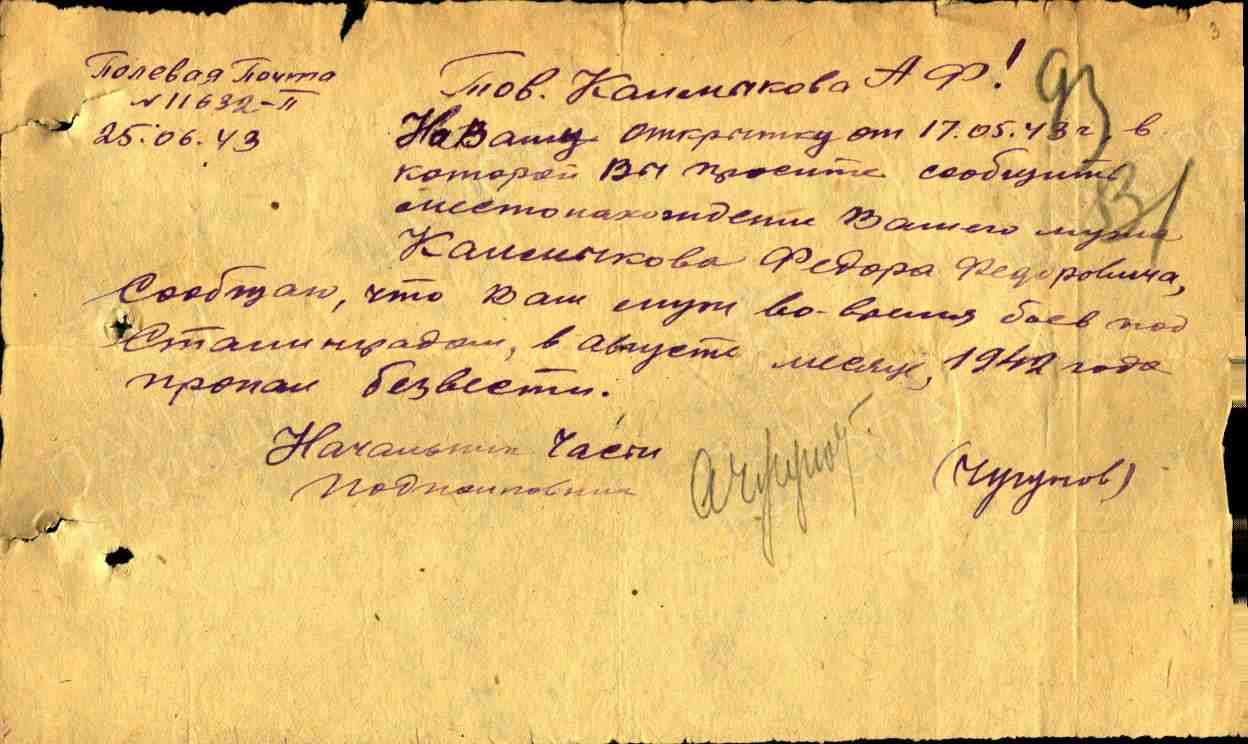 3
Полевая Почта
N 11632-П
25.06.43
Тов. Калмыкова А Ф!
93
На Вашу открытку от 17.05.43 г. в
которой Вы просите сообщить
местонахождение Вашего мужа
Калмыкова Федора Федоровича,
Сообщаю, что Ваш муж во-время боев под
Сталинградом, в августе месяце, 1942 года
пропал безвести.
Начальник Части
Подполковник
АЧугунов
(Чугунов)